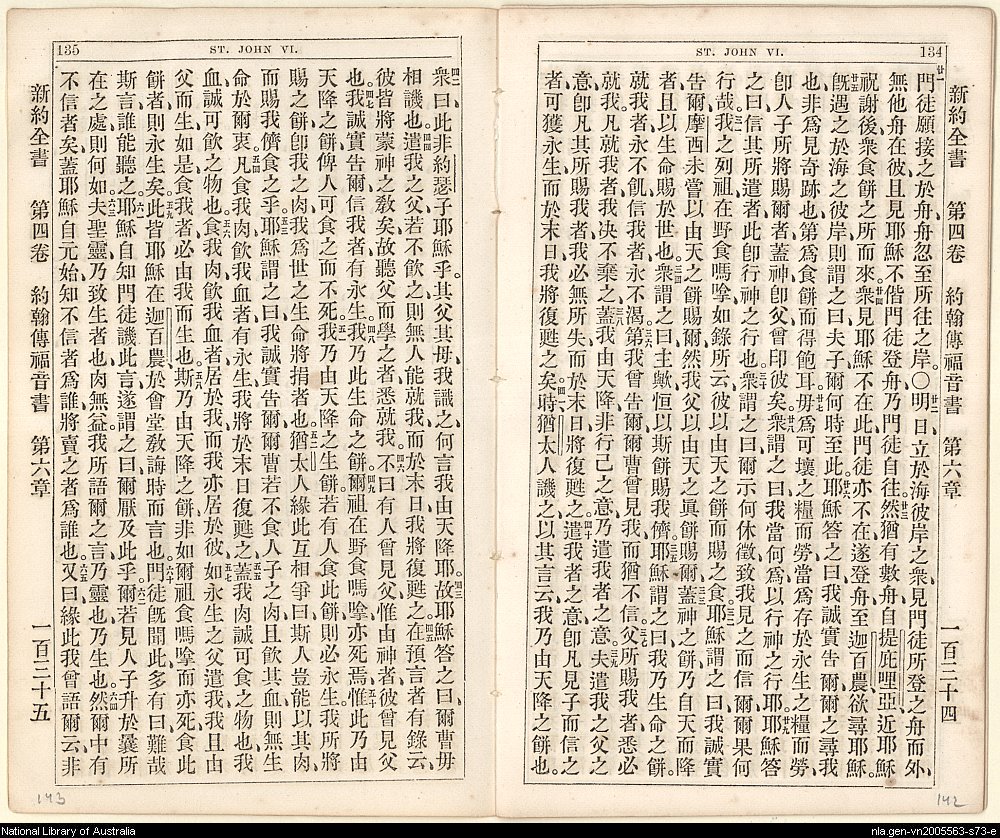 ST. JOHN VI. 134
新約全書 第四卷 約翰傳福音書 第六章 一百三十四
廿一門徒願接之於舟、舟忽至所往之岸。○廿二明日、立於海彼岸之衆、見門徒所登之舟而外、
無他舟在彼、且見耶穌不偕門徒登舟、乃門徒自往、廿三然猶有數舟自提庇哩亞、近耶穌
祝謝後衆食餅之所而來、廿四衆見耶穌不在此、門徒亦不在、遂登舟至迦百農、欲尋耶穌。
廿五既遇之於海之彼岸、則謂之曰、夫子、爾何時至此。廿六耶穌答之曰、我誠實告爾、爾之尋我
也、非爲見奇跡也、第爲食餅而得飽耳、廿七毋爲可壞之糧而勞、當爲存於永生之糧而勞、
卽人子所將賜爾者、蓋神卽父曾印彼矣、廿八衆謂之曰、我當何爲、以行神之行耶、廿九耶穌答
之曰、信其所遣者、此卽行神之行也、三十衆謂之曰、爾示何休徵、致我見之而信爾、爾果何
行哉、三一我之列祖、在野食嗎嗱、如錄所云、彼以由天之餅而賜之食、三二耶穌謂之曰、我誠實
告爾、摩西未嘗以由天之餅賜爾、然我父以由天之眞餅賜爾、三三蓋神之餅、乃自天而降
者、且以生命賜於世也、三四衆謂之曰、主歟、恒以斯餅賜我儕、三五耶穌謂之曰、我乃生命之餅、
就我者永不飢、信我者永不渴、三六第我曾告爾、爾曹曾見我而猶不信、三七父所賜我者、悉必
就我、凡就我者、我决不棄之、三八蓋我由天降、非行己之意、乃遣我者之意、三九夫遣我之父之
意、卽凡其所賜我者、我必無所失、而於末日將復甦之、四十遣我者之意、卽凡見子而信之
者、可獲永生、而於末日我將復甦之矣、四一時猶太人譏之、以其言云、我乃由天降之餅也。
142
135 ST. JOHN VI.
四二衆曰、此非約瑟子耶穌乎。其父其母、我識之、何言我由天降耶。四三故耶穌答之曰、爾曹毋
相譏也、四四遣我之父、若不飮之、則無人能就我、而於末日、我將復甦之、四五在預言者有錄云、
彼皆將蒙神之敎矣、故聽父而學之者、悉就我。四六不曰有人曾見父、惟由神者、彼曾見父
也、四七我誠實告爾、信我者有永生、四八我乃此生命之餅、四九爾祖在野食嗎嗱亦死焉、五十惟此乃由
天降之餅、俾人可食之而不死、五一我乃由天降之生餅、若有人食此餅、則必永生、我所將
賜之餅、卽我之肉、我爲世之生命將捐者也、五二猶太人緣此互相爭曰、斯人豈能以其肉
而賜我儕食之乎、五三耶穌謂之曰、我誠實告爾、爾曹若不食人子之肉、且飮其血、則無生
命於爾衷、五四凡食我肉飮我血者、有永生、我將於末日復甦之、五五蓋我肉誠可食之物也、我
血誠可飮之物也、五六食我肉飮我血者、居於我、而我亦居於彼、五七如永生之父遣我、我且由
父而生、如是食我者、必由我而生也、五八斯乃由天降之餅、非如爾祖食嗎嗱而亦死、食此
餅者、則永生矣、五九此皆耶穌在迦百農、於會堂敎誨時而言也、六十門徒旣聞此、多有曰、難哉
斯言、誰能聽之、六一耶穌自知門徒譏此言、遂謂之曰、爾厭及此乎、六二爾若見人子升於曩所
在之處、則何如、六三夫聖靈乃致生者也、肉無益、我所語爾之言、乃靈也、乃生也、六四然爾中有
不信者矣、蓋耶穌自元始知不信者爲誰、將賣之者爲誰也。六五又曰、緣此我曾語爾云、非
新約全書 第四卷 約翰傳福音書 第六章 一百三十五
143
National Library of Australia
nla.gen-vn2005563-s73-e